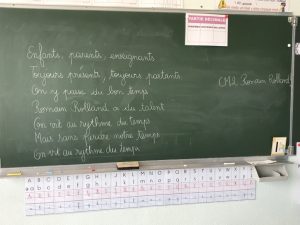 PARTIE DÉCIMALE
Enfants, parents, enseignants
Toujours présents, toujours partants
On y passe du bon temps
Romain Rolland a du talent
On vit au rythme du temps
Mais sans perdre notre temps
On vit au rythme du temps
CM2 Romain Rolland
A B C D E F G H I J K L M N O P Q R S T U V W X Y Z
a b c d e f g h i j k l m n o p q r s t u v w x y z